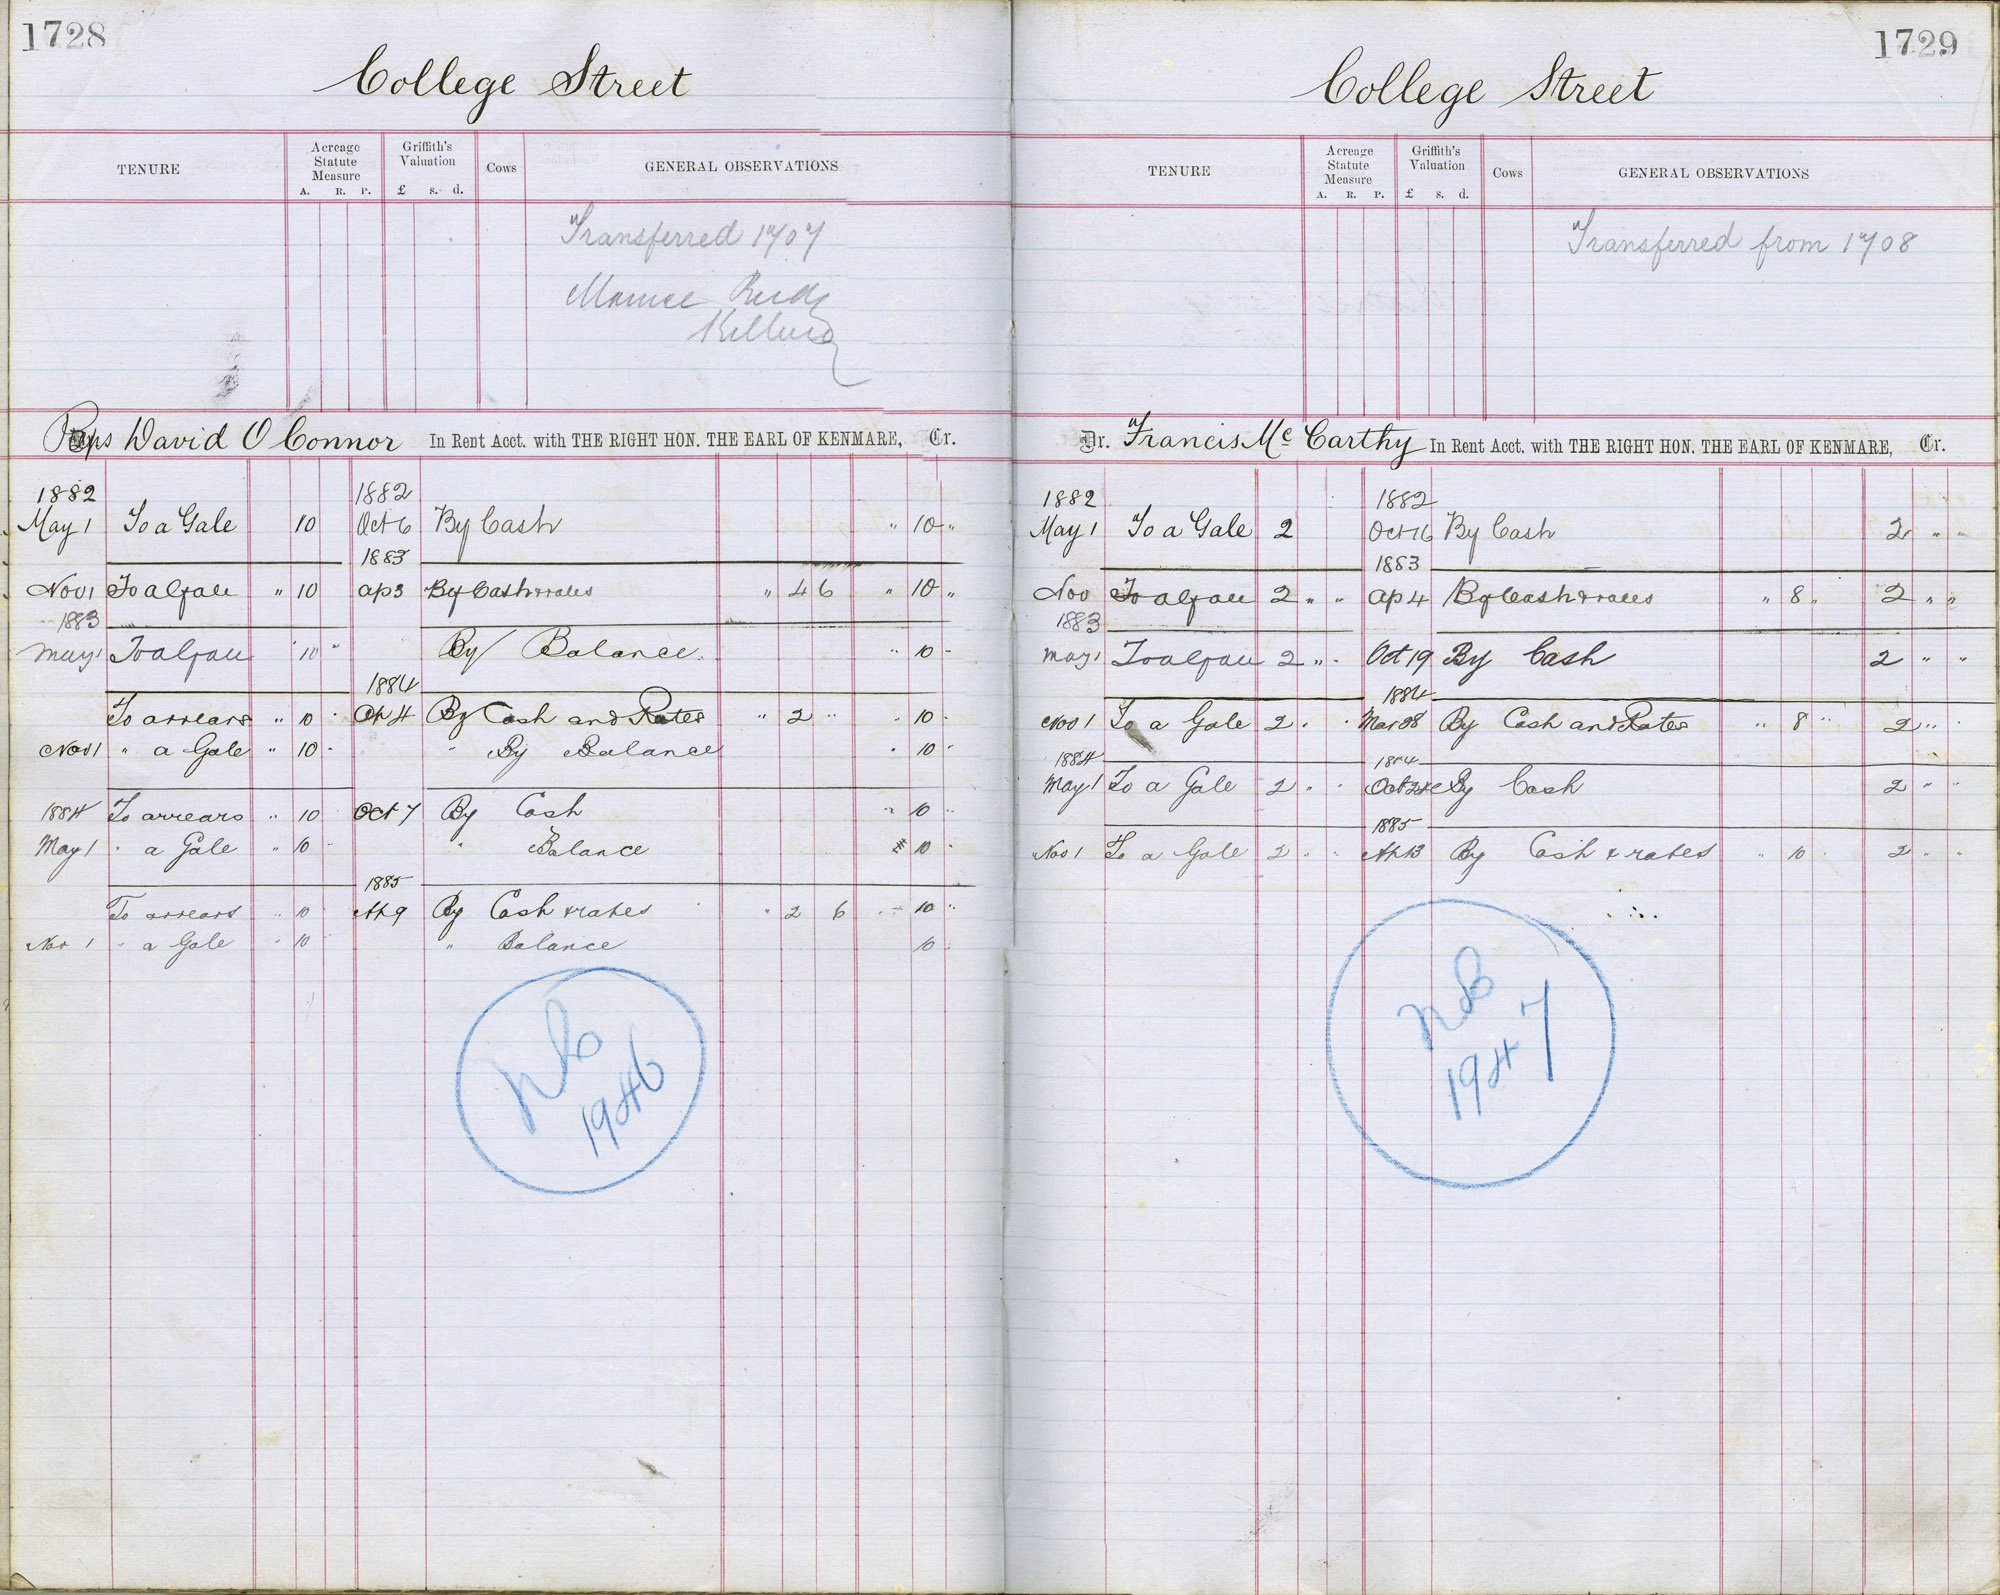 1728
College Street
TENURE
Acreage Statute Measure
A. R. P.
Griffith's Valuation
£ s. d.
Cows
GENERAL OBSERVATIONS
Transferred 1707
Reps David O Connor In Rent Acct. with THE RIGHT HON. THE EARL OF KENMARE, Cr.
1882 1882
May 1 To a Gale 10 Oct 6 By Cash " 10 "
1883
Nov 1 To a Gale " 10 Ap 3 By Cash & rates " 4 6 " 10 "
1883
May 1 To a Gale " 10 " By Balance " 10 -
1884
To arrears " 10 " Ap 4 By Cash and Rates " 2 " " 10 -
Nov 1 " a Gale " 10 - " By Balance " 10 "
1884 To arrears " 10 Oct 7 By Cash " 10 "
May 1 " a Gale " 10 - " Balance 10 "
1885
To arrears " 10 Ap 9 By Cash & rates " 2 6 " 10 "
Nov 1 " a Gale " 10 " Balance 10
1946
1729
College Street
TENURE
Acreage Statute Measure
A. R. P.
Griffith's Valuation
£ s. d.
Cows
GENERAL OBSERVATIONS
Transferred from 1708
Dr. Francis Mc Carthy In Rent Acct. with THE RIGHT HON. THE EARL OF KENMARE, Cr.
1882 1882
May 1 To a Gale 2 Oct 16 By Cash 2 " "
1883
Nov To a Gale 2 " " Ap 4 By Cash & rates " 8 " 2 " "
1883
May 1 To a Gale 2 " " Oct 19 By Cash 2 " "
1884
Nov 1 To a Gale 2 " " Mar 28 By Cash and Rates " 8 " 2 " "
1884 1884
May 1 To a Gale 2 " " Oct 24 By Cash 2 " "
1885
Nov 1 To a Gale 2 " " Ap 13 By Cash & rates " 10 " 2 " "
1947